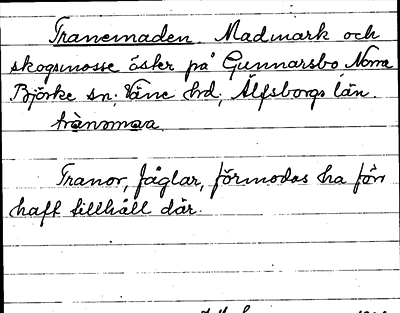 Tranemaden. Madmark och
skogsmosse öster på Gunnarsbo Norra
Björke sn, Väne hd, Älfsborgs län.
Tranor, fåglar, förmodas ha förr
haft tillhåll där.